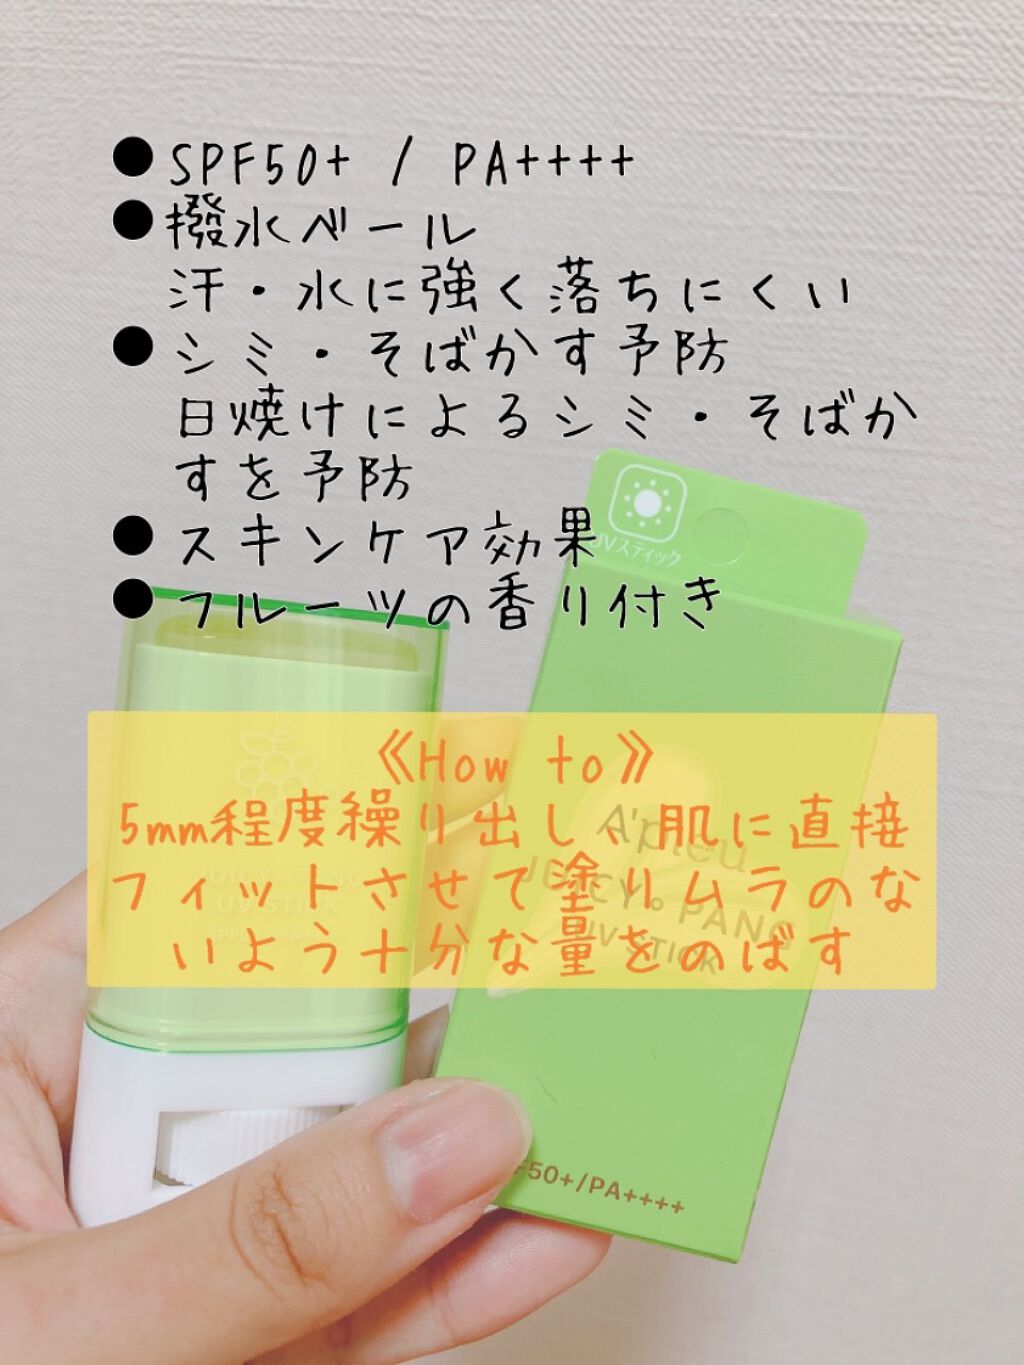 ●SPF50+ / PA++++
●撥水ベール
汗・水に強く落ちにくい
●シミ・そばかす予防
日焼けによるシミ・そばか
すを予防
●スキンケア効果
●フルーツの香り付き
UVスティック
《How to》
5mm程度繰り出し、肌に直接
フィットさせて塗りムラのな
いよう十分な量をのばす
JUICY PANG
UV STICK
A'pieu
JUICY PANG
UV STICK
F50+/PA++++